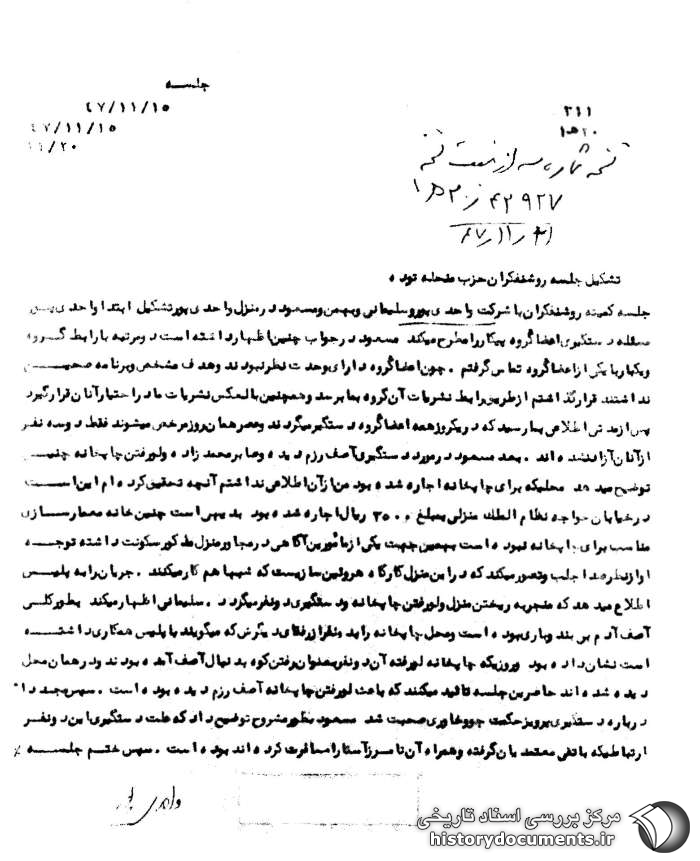 جلسه
۴۷/۱۱/۱۵
۴۷/۱۱/۱۵
۱۱/۲۰
۳۱۱
۲۰ه۱
۴۲۹۲۷
تشکیل جلسه روشنفکران حزب منحله توده
جلسه کمیته روشنفکران با شرکت واحدی پور و سلیمانی و بهمن و مسعود در منزل واحدی پور تشکیل ابتدا واحدی پور
مسئله دستگیری اعضا گروه پیکار را مطرح میکند مسعود در جواب چنین اظهار داشته است دو مرتبه با رابط گروه
و یکبار با یکی از اعضا گروه تماس گرفتم . چون اعضا گروه دارای وحدت نظر نبودند و هدف مشخص و برنامه صحیحی
نداشتند قرار گذاشتم از طریق رابط نشریات آن گروه بما برسد و همچنین بالعکس نشریات ما در اختیار آنان قرار گیرد
پس از مدتی اطلاعی بما رسید که در یکروز همه اعضا گروه دستگیر میگردند و عصر همان روز مرخص میشوند فقط دو سه نفر
از آنان آزاد نشده اند . بعد مسعود در مورد دستگیری آصف رزم دیده و صابر محمد زاده و لو رفتن چاپخانه چنین
توضیح میدهد محلیکه برای چاپخانه اجاره شده بود من از آن اطلاعی نداشتم آنچه تحقیق کرده ام این است
در خیابان خواجه نظام الملک منزلی بمبلغ ۳۵۰۰ ریال اجاره شده بود بدیهی است چنین خانه معمار سازی
مناسب برای چاپخانه نبوده است بهمین جهت یکی از مأمورین آگاهی در مجاور منزل مذکور سکونت داشته توجه
او از نظر صدا جلب و تصور میکند که در این منزل کارگاه هروئین سازیست که شبها هم کار میکنند . جریان را به پلیس
اطلاع میدهد که منجر به ریختن منزل و لو رفتن چاپخانه و دستگیری دو نفر میگردد . سلیمانی اظهار میکند بطور کلی
آصف آدم بی بند و باری بوده است و محل چاپخانه را به دو نفر از رفقای دیگرش که میگویند با پلیس همکاری داشته
است نشان داده بود و روزیکه چاپخانه لو رفته آن دو نفر بعنوان رفتن کوه بدنبال آصف آمده بودند و در همان محل
دیده شده اند حاضرین جلسه تائید میکنند که باعث لو رفتن چاپخانه آصف رزم دیده بوده است . سپس مجددا"
درباره دستگیری پرویز حکمت جو و خاوری صحبت شد مسعود بطور مشروح توضیح داد که علت دستگیری این دو نفر
ارتباطیکه با تقی معتمدیان گرفته و همراه آن تا مرز آستارا مسافرت کرده اند بوده است . سپس ختم جلسه
واحدی پور
مرکز بررسی اسناد تاریخی
historydocuments.ir